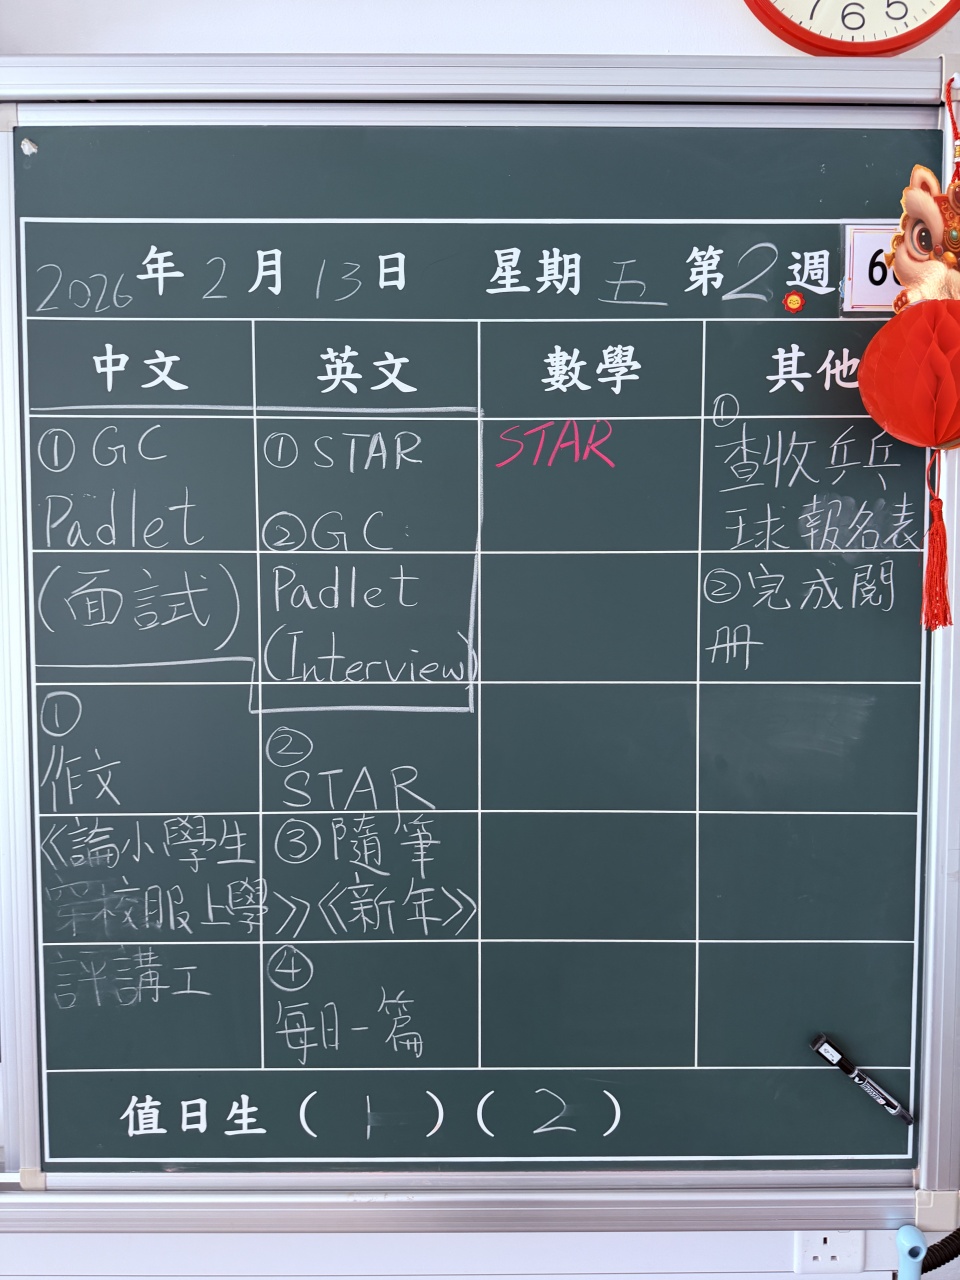 7 6 5
2026年2月13日 星期五 第2週
6
中文 英文 數學 其他
① GC
Padlet
(面試)
①
作文
《論小學生
穿校服上學》
評講工
① STAR
② GC:
Padlet
(Interview)
②
STAR
③ 隨筆
《新年》
④
每日一篇
STAR
①
查收乒乓
球報名表
② 完成閱
冊
值日生 ( 1 ) ( 2 )